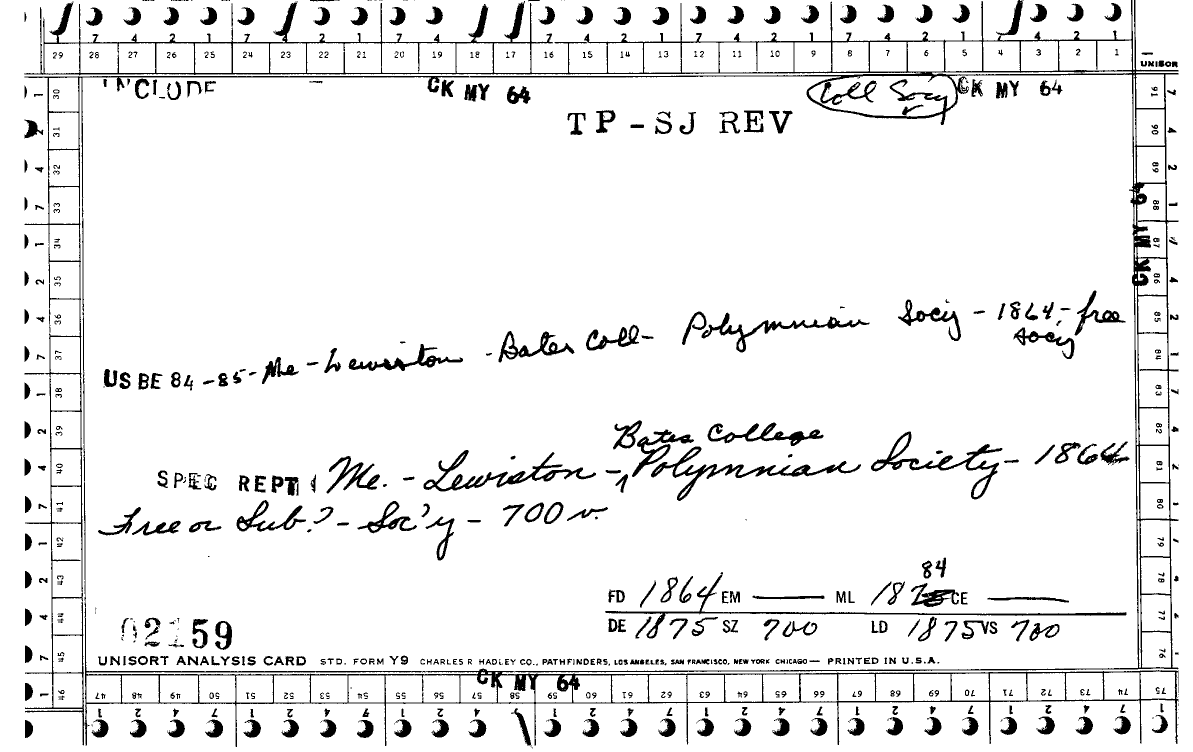 7 4 2 1 7 4 2 1 7 4 2 1 7 4 2 1 7 4 2 1 7 4 2 1 7 4 2 1
29 28 27 26 25 24 23 22 21 20 19 18 17 16 15 14 13 12 11 10 9 8 7 6 5 4 3 2 1
UNISOR
INCLUDE CK MY 64 Coll Soc'y CK MY 64
TP-SJ REV
CK MY 64
US BE 84-85-Me-Lewiston-Bates Coll-Polymnian Soc'y-1864-free
soc'y
Bates College
SPEC REPT Me.-Lewiston-^Polymnian Society-1864
Free or Sub.?-Soc'y-700 v.
84
FD 1864 EM — ML 1875 CE —
DE 1875 SZ 700 LD 1875 VS 700
02159
UNISORT ANALYSIS CARD STD. FORM Y9 CHARLES R HADLEY CO., PATHFINDERS, LOS ANGELES, SAN FRANCISCO, NEW YORK CHICAGO— PRINTED IN U.S.A.
CK MY 64
30 31 32 33 34 35 36 37 38 39 40 41 42 43 44 45 46
47 48 49 50 51 52 53 54 55 56 57 58 59 60 61 62 63 64 65 66 67 68 69 70 71 72 73 74 75
76 77 78 79 80 81 82 83 84 85 86 87 88 89 90 91